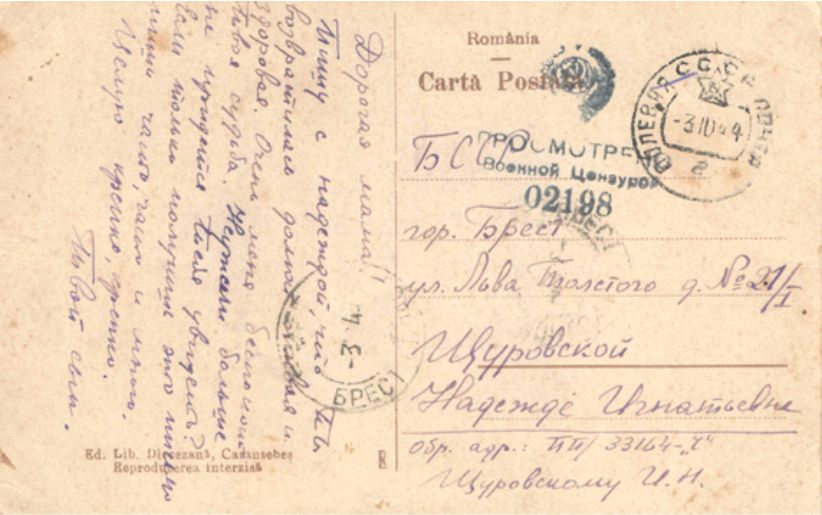 România
Cartă Postală
Дорогая мама!
Пишу с надеждой, что ты
возвратилась домой живая и
здоровая. Очень меня беспокоит
твоя судьба. Неужели больше
не придется тебя увидеть?
Если только получишь это письмо
пиши часто, часто и много.
Целую крепко, крепко.
Твой сын.
ПОЛЕВАЯ ПОЧТА
СССР
-3 10 44
а
ПРОСМОТРЕ
Военной Цензурой
02198
БССР
гор. Брест
ул. Льва Толстого д. №21/I
Щуровской
Надежде Игнатьевне
обр. адр.: ПП/ 33164-„Ч"
Щуровскому И.Н.
БРЕСТ
БРЕСТ
Ed. Lib. Diecezană, Caransebeş
Reproducerea interzisă